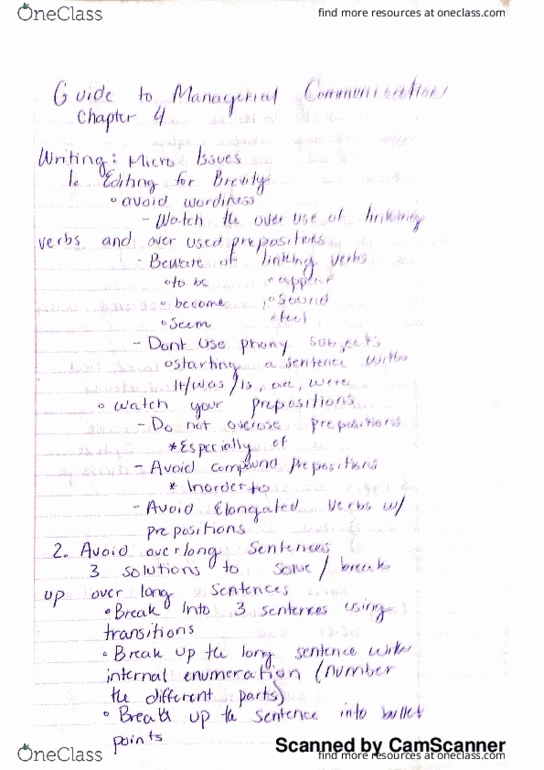 OneClass
find more resources at oneclass.com
Guide to Managerial Communication
Chapter 4
Writing: Micro Issues
1. Editing for Brevity
° avoid wordiness
- Watch the over use of linking
verbs and over used prepositions
- Beware of linking verbs
° to be ° appear
° become ° sound
° seem ° feel
- Dont use phony subjects
° starting a sentence with
It/was/is, are, were
° Watch your prepositions
- Do not overuse prepositions
* Especially of
- Avoid compound prepositions
* Inorder to
- Avoid Elongated verbs w/
prepositions
2. Avoid overlong sentences
3 solutions to solve/break
up over long sentences
° Break into 3 sentences using
transitions
° Break up the long sentence with
internal enumeration (number
the different parts)
° Break up the sentence into bullet
points
Scanned by CamScanner
OneClass
find more resources at oneclass.com